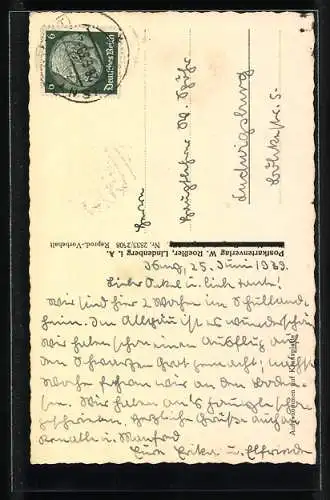 6 6
Deutsches Reich
Herrn
Hauptlehrer W.
Ludwigsburg
5.
Postkartenverlag W. Roeßler, Lindenberg i. A.
Nr. 2533/2108 Reprod.-Vorbehalt
Isny, 25. Juni 1939.
Liebe Onkel u. lieb Tante!
Wir sind hier 2 Wochen im Schulland-
heim. Im Allgäu ist es wunderschön
Wir haben schon einen Ausflug auf
den Schwarzen Grat gemacht, nächste
Woche fahren wir an den Boden-
see. Wir haben
geschrieben. Herzliche Grüße auch an
u. Manfred
Eure Erika u. Elfriede